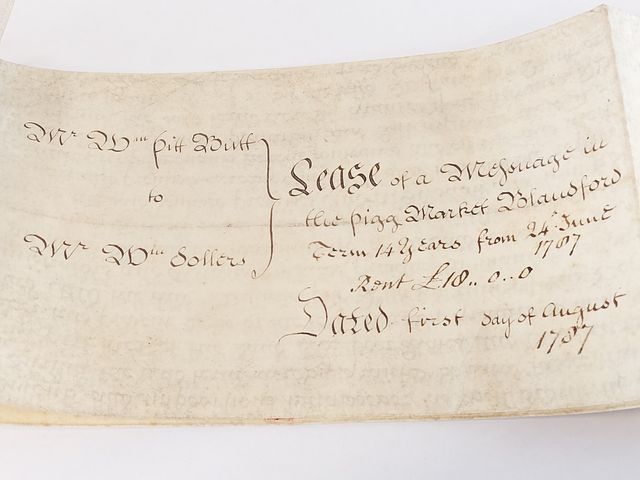 Mr Wm Pitt Butt
to
Mr Wm Sollers
Lease of a Messuage in
the Pigg Market Blandford
Term 14 Years from 24th June
1787
Rent £18.. 0.. 0
Dated first day of August
1787